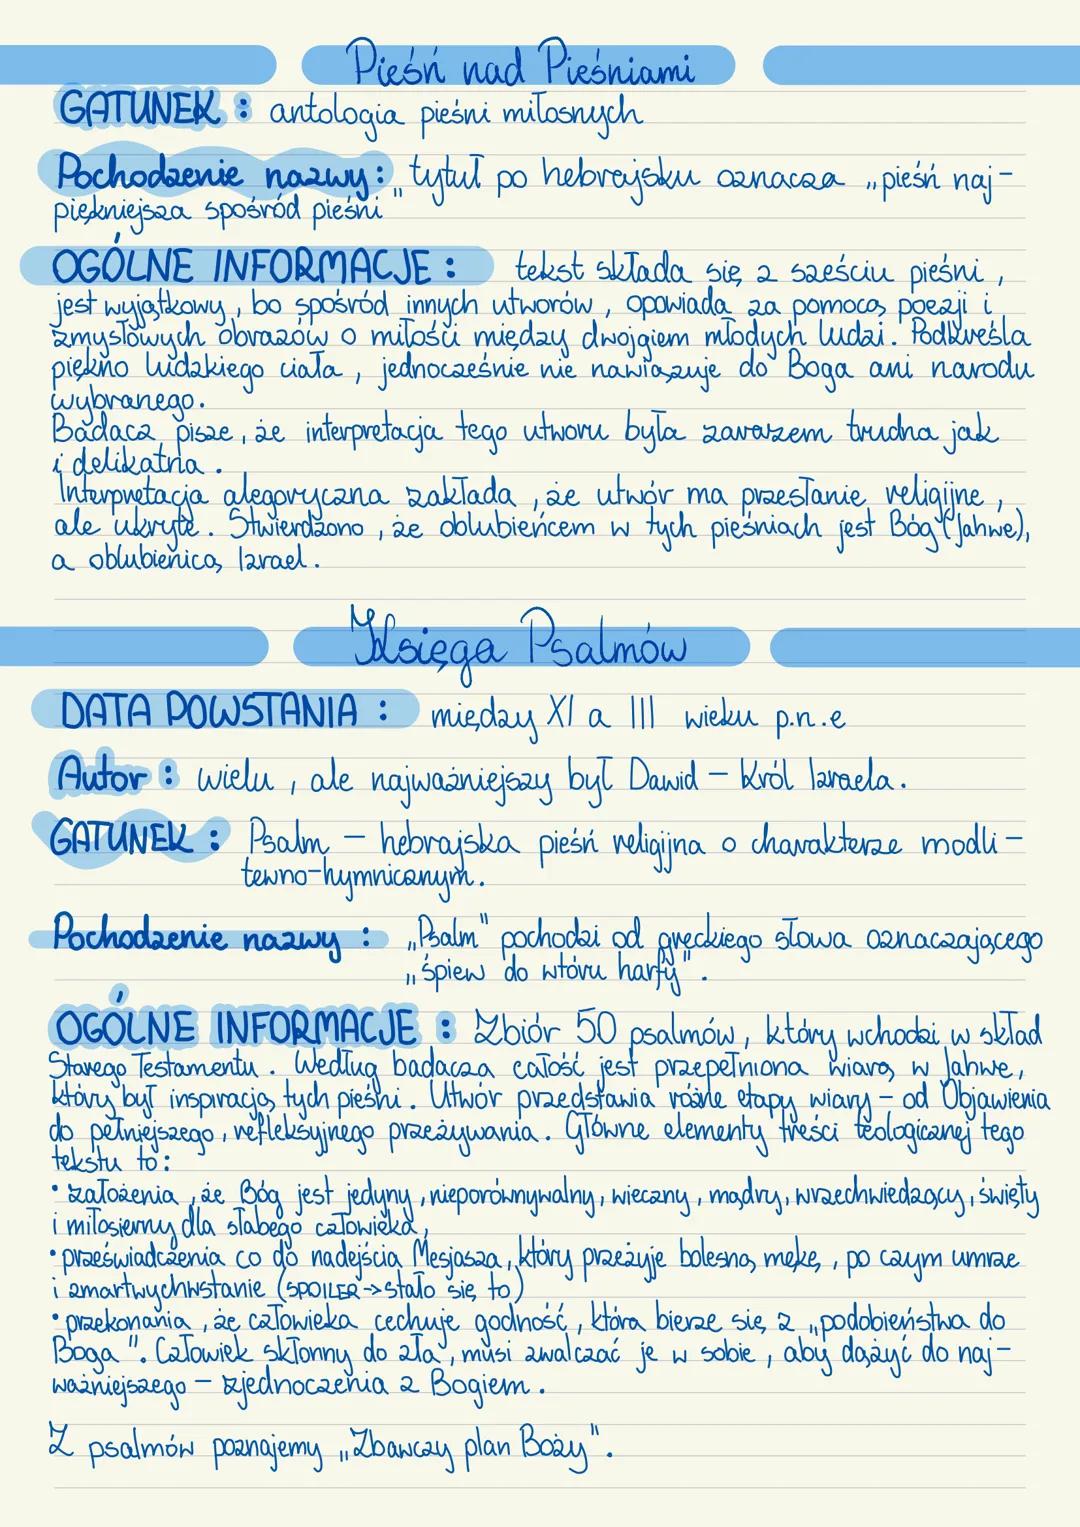 Pieśń nad Pieśniami
GATUNEK : antologia pieśni miłosnych
Pochodzenie nazwy : tytuł po hebrajsku oznacza „pieśń naj-
piękniejsza spośród pieśni"
OGÓLNE INFORMACJE : tekst składa się z sześciu pieśni ,
jest wyjątkowy , bo spośród innych utworów , opowiada za pomocą poezji i
zmysłowych obrazów o miłości między dwojgiem młodych ludzi. Podkreśla
piękno ludzkiego ciała , jednocześnie nie nawiązuje do Boga ani narodu
wybranego.
Badacz pisze , że interpretacja tego utworu była zarazem trudna jak
i delikatna .
Interpretacja alegoryczna zakłada , że utwór ma przesłanie religijne ,
ale ukryte . Stwierdzono , że oblubieńcem w tych pieśniach jest Bóg (Jahwe),
a oblubienicą Izrael .
Księga Psalmów
DATA POWSTANIA : między XI a III wieku p.n.e
Autor : wielu , ale najważniejszy był Dawid – Król Izraela .
GATUNEK : Psalm – hebrajska pieśń religijna o charakterze modli –
tewno-hymnicznym .
Pochodzenie nazwy : „Psalm" pochodzi od greckiego słowa oznaczającego
„śpiew do wtóru harfy" .
OGÓLNE INFORMACJE : Zbiór 50 psalmów , który wchodzi w skład
Starego Testamentu . Według badacza całość jest przepełniona wiarą w Jahwe,
który był inspiracją tych pieśni . Utwór przedstawia różne etapy wiary – od Objawienia
do pełniejszego , refleksyjnego przeżywania . Główne elementy treści teologicznej tego
tekstu to :
• założenia , że Bóg jest jedyny , nieporównywalny , wieczny , mądry , wrzechwiedzący , święty
i miłosierny dla słabego człowieka ,
• przeświadczenia co do nadejścia Mesjasza , który przeżyje bolesną mękę , po czym umrze
i zmartwychwstanie (SPOILER -> stało się to)
• przekonania , że człowieka cechuje godność , która bierze się z „podobieństwa do
Boga ". Człowiek skłonny do zła , musi zwalczać je w sobie , aby dążyć do naj-
ważniejszego – zjednoczenia z Bogiem .
Z psalmów poznajemy „Zbawczy plan Boży" .